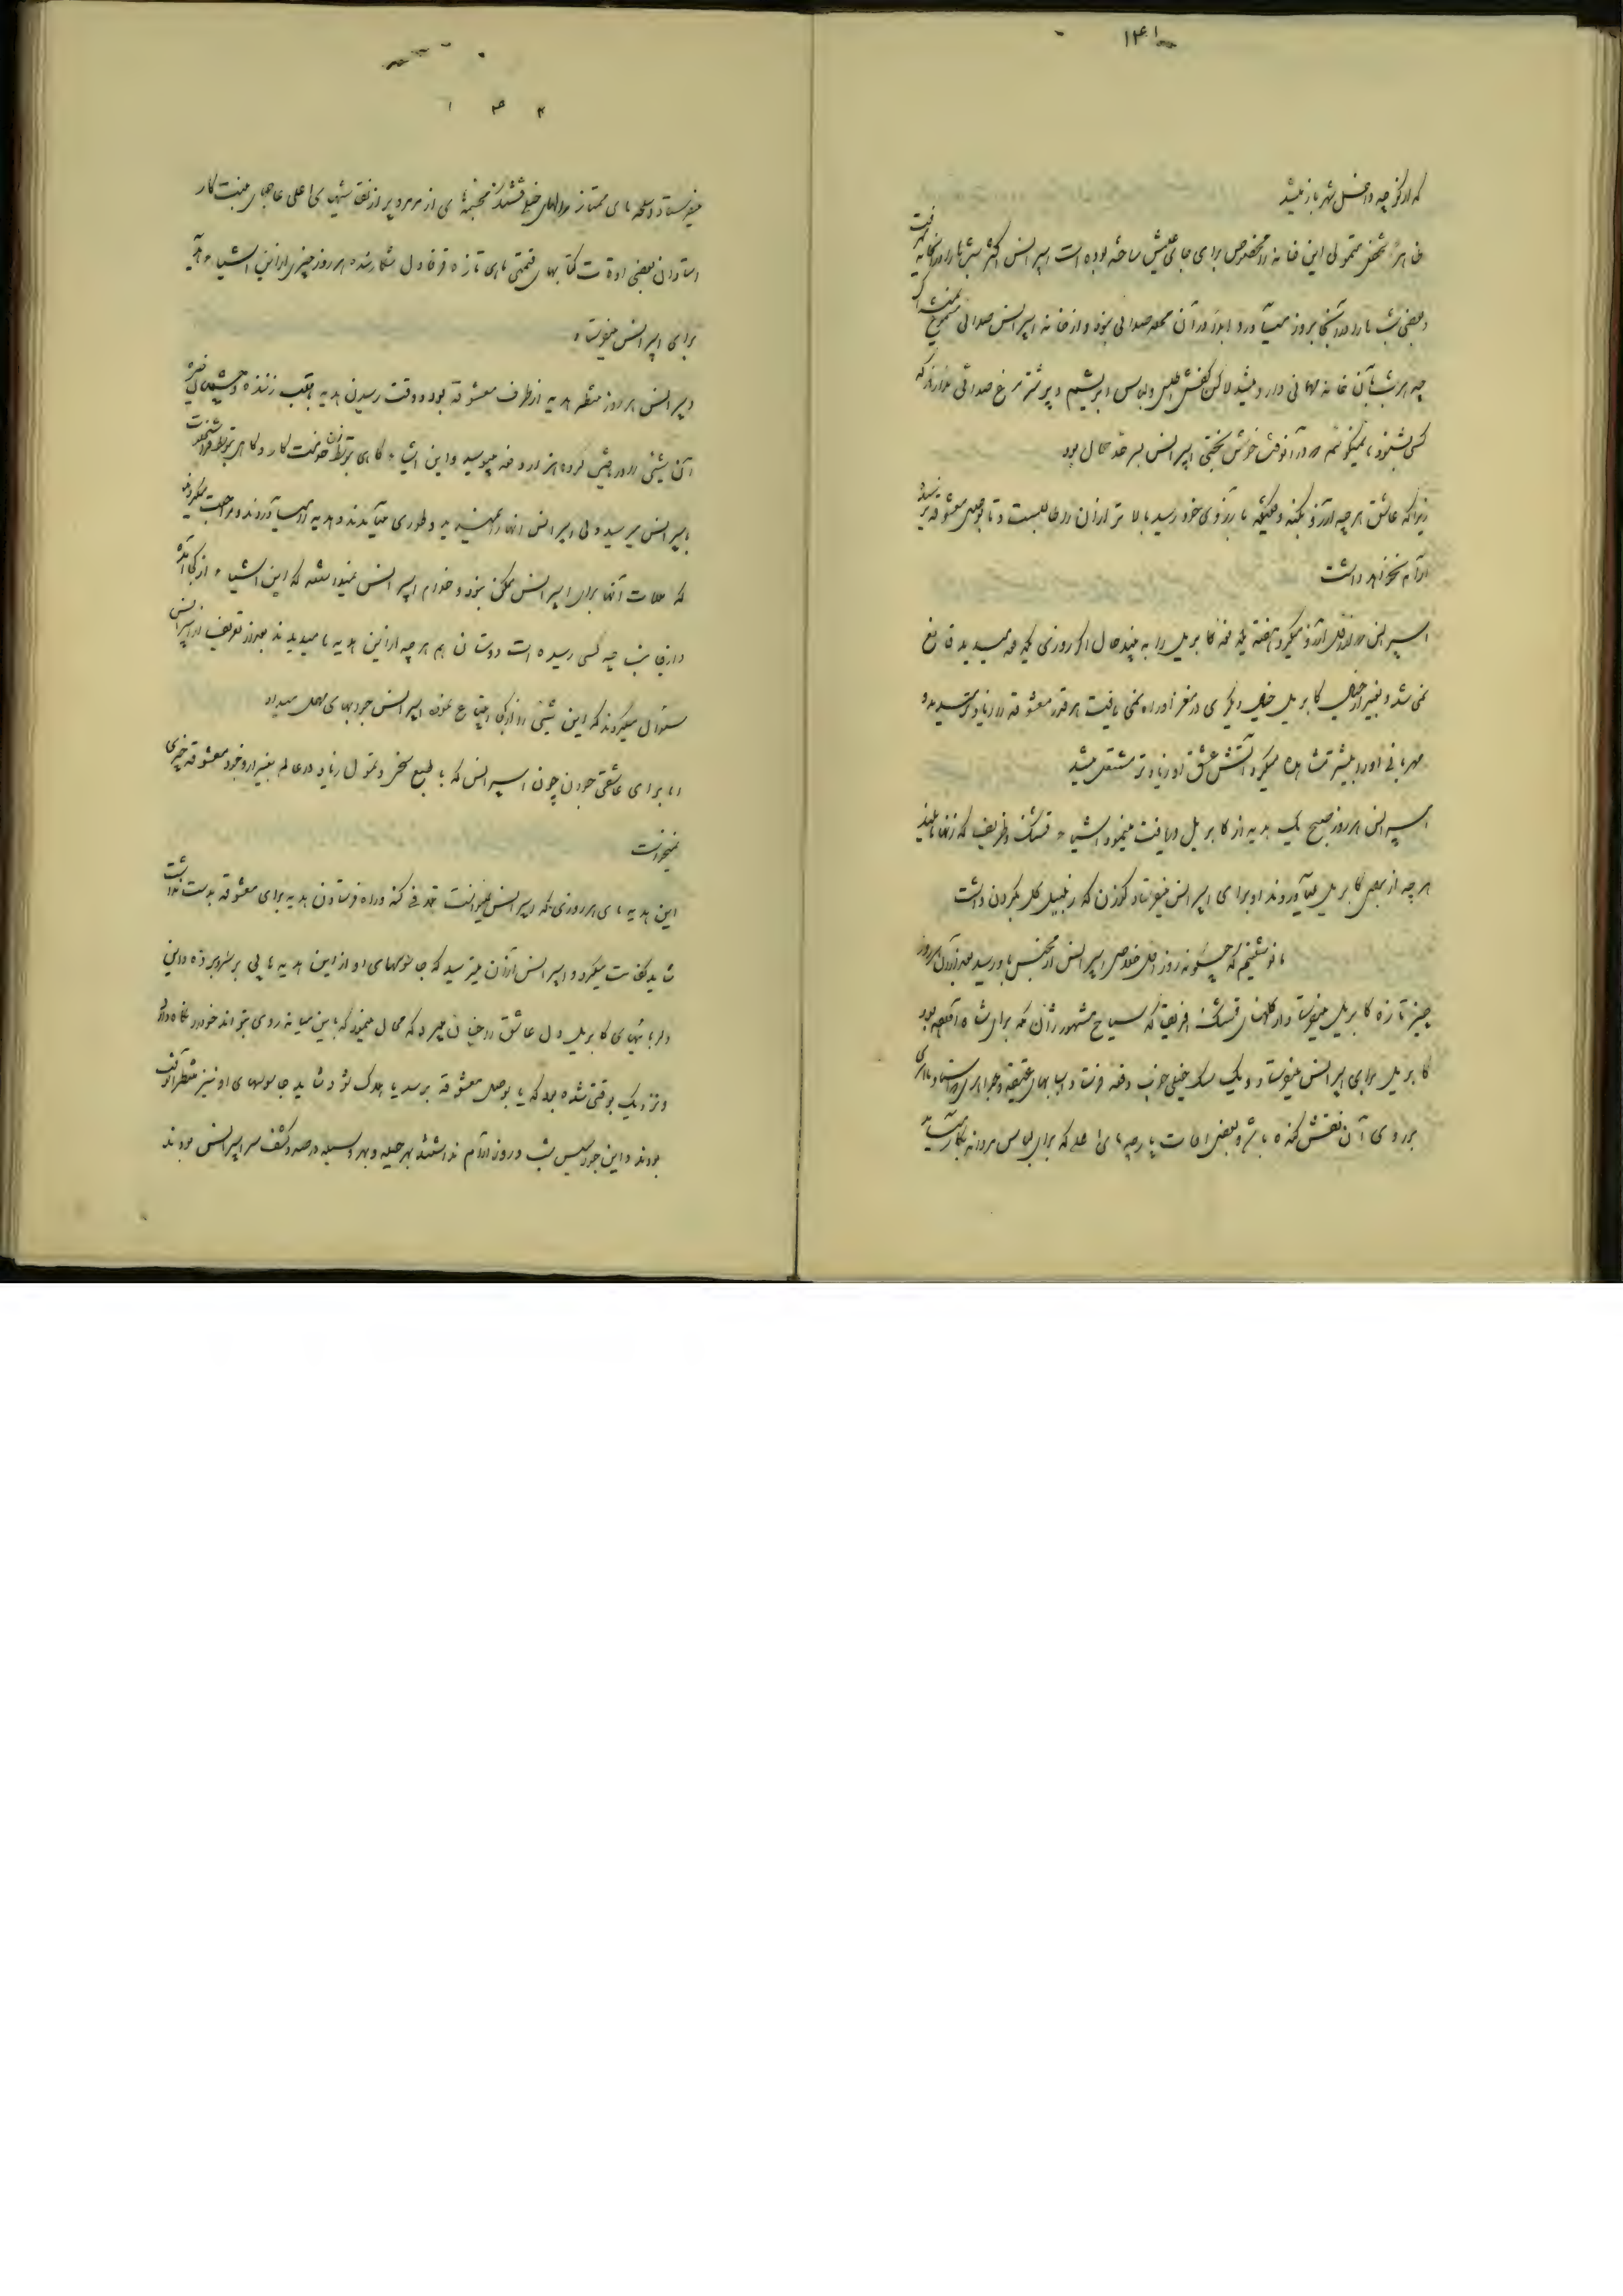 ۱۴۱
که از کوچه داخل شهر باز میشد
ظاهراً شخص متمولی این خانه را مخصوص برای جای عیش ساخته بوده است اسپرانس اکثر شبها را در آنجا
و بعضی شب‌ها را در آنجا بروز میآورد و ابداً در آن محله صدائی نبود و از خانه اسپرانس صدائی مسموع
چه هر شب آن خانه مهمانی دارد میشد لاکن کفش اطلس و لباس ابریشم و پر شتر مرغ صدائی ندارند که
کسی بشنود نمیگویم در آنوقت خوش بختی اسپرانس بسر حد کمال بود
زیرا که عاشق هر چه آرزو بکند وقتیکه بآرزوی خود رسید بالاتر از آن را طالبست و تا بوصل معشوقه نرسد
آرام نخواهد داشت
اسپرانس در اول آرزو میکرد هفته یکدفعه کابریل را به بیند حال اگر روزی یکدفعه میدید قانع
نمی‌شد و بغیر از خیال کابریل خیال دیگری در مغز او راه نمی یافت هر قدر معشوقه را زیادتر میدید و
مهربانی او را بیشتر مشاهده میکرد آتش عشق او زیادتر مشتعل میشد
اسپرانس هر روز صبح یک هدیه از کابریل دریافت مینمود اشیاء قشنگ و ظریف که
هر چه از برای کابریل میآوردند او برای اسپرانس میفرستاد کوزن که زنبیل گل بگردن داشت
ما نوشتیم که چگونه روز اول خلاصی اسپرانس از محبس باو رسید بعد از آن هر روز
چیز تازه کابریل میفرستاد از گلهای قشنگ افریقا که سیاح مشهور ژان مکه برای شاه آورده بود
کابریل برای اسپرانس میفرستاد و یک سگ خیلی خوب دفعه فرستاد و اسبابهای عتیقه و جواهر
بر روی آن نقش کنده باشد و بعضی اوقات پارچه‌های اعلی که برای لباس مردانه بکار میآید
۱۴۲
میفرستاد و اسلحه های ممتاز و رالهای خیلی قشنگ مجسمه‌های از مرمر و پر از نقاشیهای اعلی عاجهای منبت کار
استادان بعضی اوقات کتابهای قیمتی هر روز چیزی از این اشیاء
برای اسپرانس میفرستاد
اسپرانس هر روز منتظر هدیه از طرف معشوقه بود و وقت رسیدن هدیه بقلب زننده و چشمهای خیره
آن شیئی را در بغل کرده هزار دفعه میبوسید و این اشیاء گاهی بتوسط زن خدمت کار و گاهی بتوسط
باسپرانس میرسید ولی اسپرانس آنها را نمیدید و طوری میآمدند و هدیه را میآوردند و مراجعت میکردند
که ملاقات آنها برای اسپرانس ممکن نبود و خدام اسپرانس نمیدانستند که این اشیاء از کجا آمده
و از جانب چه کسی رسیده است دوستان هم هر چه از این هدیه ها میدیدند بعد از تعریف از اسپرانس
سئوال میکردند که این شیئی را از کجا ابتیاع نموده اسپرانس جوابهای مهمل میداد
اما برای عاشقی جوان چون اسپرانس که با طبع سخی و تمول زیاد در عالم بغیر از وجود معشوقه چیزی
نمیخواست
این هدیه های هر روزی که اسپرانس نمیتوانست تلافی کند و راه فرستادن هدیه برای معشوقه بدست نداشت
شاید کفایت میکرد و اسپرانس از آن میترسید که جاسوسهای او از این هدیه ها پی بر سر برده و این
دلربائیهای کابریل دل عاشق را چنان میبرد که محال مینمود که باین میانه روی بتواند خود را نگاه دارد
و نزدیک بوقتی شده بود که یا بوصل معشوقه برسد یا هلاک شود شاید جاسوسهای او نیز منتظر آنوقت
بودند و این جواسیس شب و روز آرام نداشتند بهر حیله و بهر وسیله در صدد کشف سر اسپرانس بودند